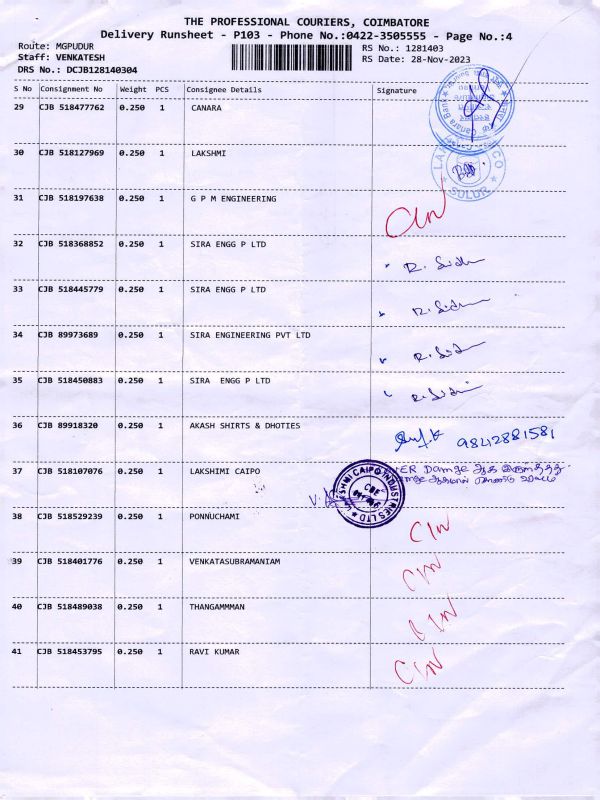 THE PROFESSIONAL COURIERS, COIMBATORE
Delivery Runsheet - P103 - Phone No.:0422-3505555 - Page No.:4
Route: MGPUDUR RS No.: 1281403
Staff: VENKATESH RS Date: 28-Nov-2023
DRS No.: DCJB128140304
S No Consignment No Weight PCS Consignee Details Signature
29 CJB 518477762 0.250 1 CANARA
Canara Bank
30 CJB 518127969 0.250 1 LAKSHMI
SULUR
31 CJB 518197638 0.250 1 G P M ENGINEERING
32 CJB 518368852 0.250 1 SIRA ENGG P LTD
33 CJB 518445779 0.250 1 SIRA ENGG P LTD
34 CJB 89973689 0.250 1 SIRA ENGINEERING PVT LTD
35 CJB 518450883 0.250 1 SIRA ENGG P LTD
36 CJB 89918320 0.250 1 AKASH SHIRTS & DHOTIES 9842881581
37 CJB 518107076 0.250 1 LAKSHIMI CAIPO
LAKSHMI CAIPO INDUSTRIES LTD
CBE
38 CJB 518529239 0.250 1 PONNUCHAMI
39 CJB 518401776 0.250 1 VENKATASUBRAMANIAM
40 CJB 518489038 0.250 1 THANGAMMMAN
41 CJB 518453795 0.250 1 RAVI KUMAR